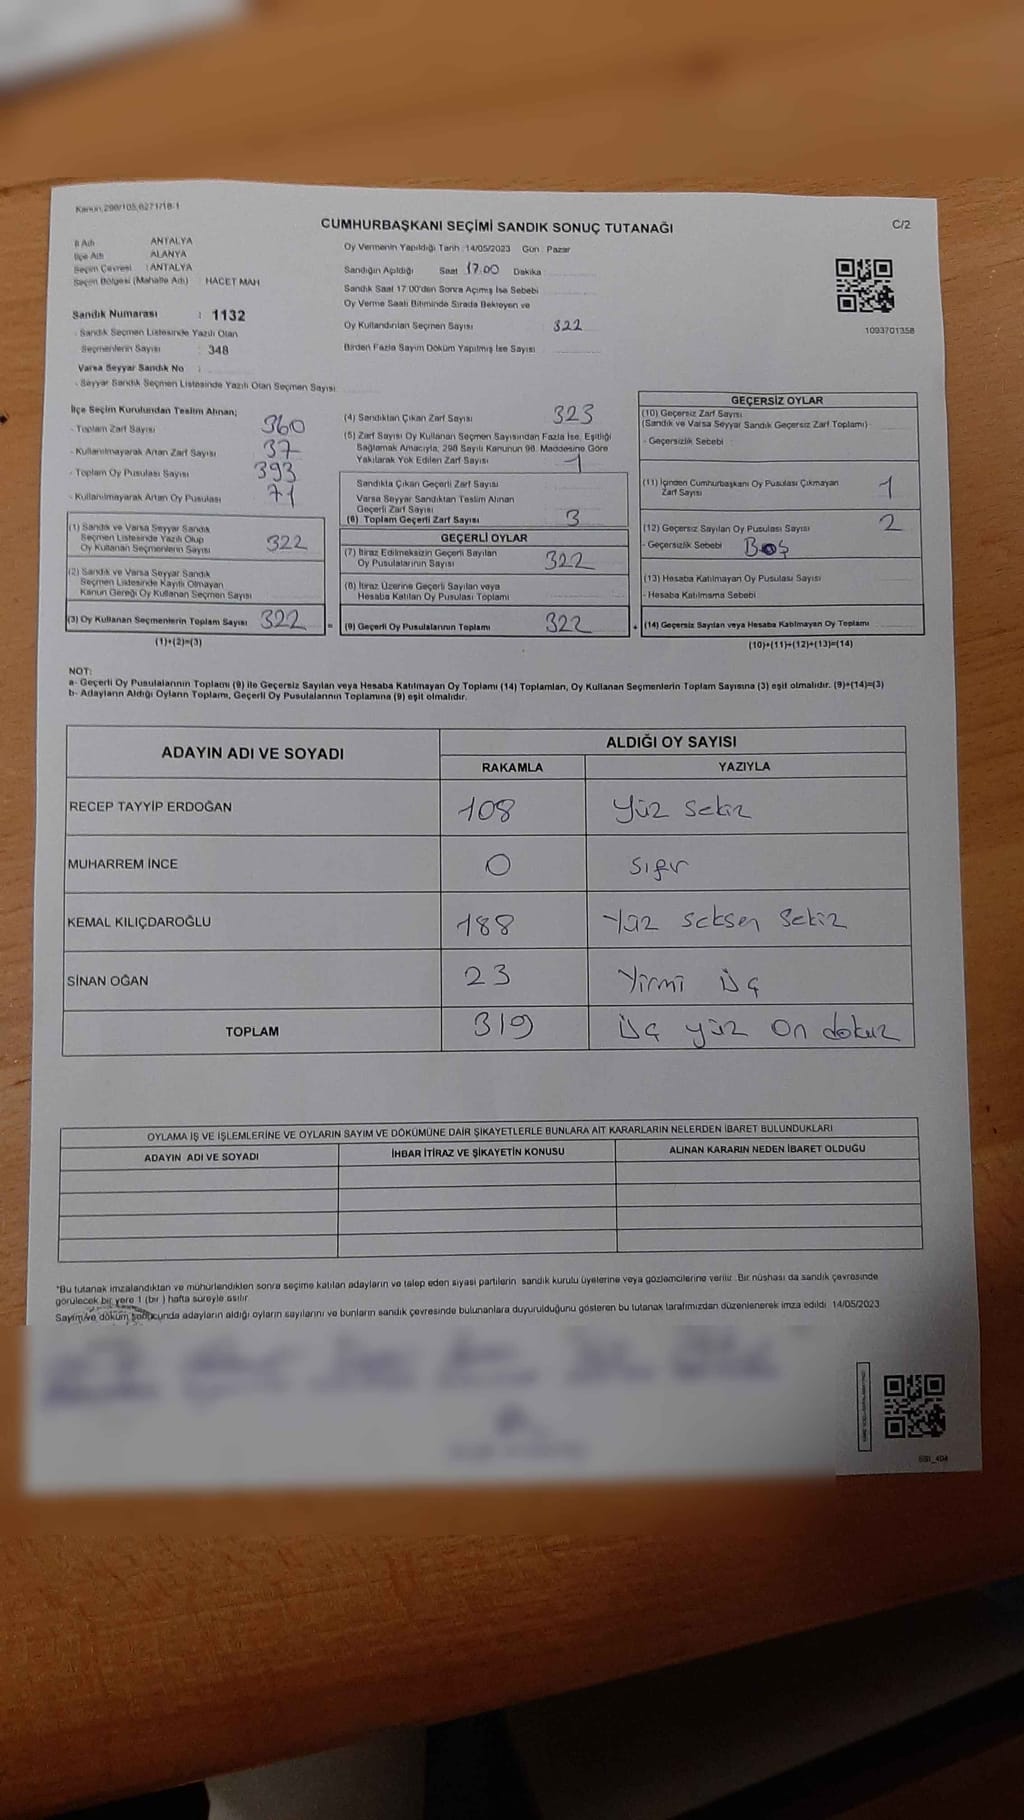 Kanun,298/105,6271/18-1
CUMHURBAŞKANI SEÇİMİ SANDIK SONUÇ TUTANAĞI
C/2
İl Adı ANTALYA
İlçe Adı ALANYA
Seçim Çevresi : ANTALYA
Seçim Bölgesi (Mahalle Adı) HACET MAH
Sandık Numarası : 1132
- Sandık Seçmen Listesinde Yazılı Olan
Seçmenlerin Sayısı : 348
Varsa Seyyar Sandık No :
- Seyyar Sandık Seçmen Listesinde Yazılı Olan Seçmen Sayısı
Oy Vermenin Yapıldığı Tarih :14/05/2023 Gün : Pazar
Sandığın Açıldığı Saat 17:00 Dakika
Sandık Saat 17:00'den Sonra Açımış İse Sebebi
Oy Verme Saati Bitiminde Sırada Bekleyen ve
Oy Kullandırılan Seçmen Sayısı 322
Birden Fazla Sayım Döküm Yapılmış İse Sayısı
1093701358
İlçe Seçim Kurulundan Teslim Alınan;
- Toplam Zarf Sayısı 360
- Kullanılmayarak Artan Zarf Sayısı 37
- Toplam Oy Pusulası Sayısı 393
- Kullanılmayarak Artan Oy Pusulası 71
(1) Sandık ve Varsa Seyyar Sandık
Seçmen Listesinde Yazılı Olup
Oy Kullanan Seçmenlerin Sayısı 322
(2) Sandık ve Varsa Seyyar Sandık
Seçmen Listesinde Kayıtlı Olmayan
Kanun Gereği Oy Kullanan Seçmen Sayısı
(3) Oy Kullanan Seçmenlerin Toplam Sayısı 322 =
(1)+(2)=(3)
(4) Sandıktan Çıkan Zarf Sayısı 323
(5) Zarf Sayısı Oy Kullanan Seçmen Sayısından Fazla İse, Eşitliği
Sağlamak Amacıyla, 298 Sayılı Kanunun 98. Maddesine Göre
Yakılarak Yok Edilen Zarf Sayısı 1
Sandıkta Çıkan Geçerli Zarf Sayısı
Varsa Seyyar Sandıktan Teslim Alınan
Geçerli Zarf Sayısı
(6) Toplam Geçerli Zarf Sayısı 3
GEÇERLİ OYLAR
(7) İtiraz Edilmeksizin Geçerli Sayılan
Oy Pusulalarının Sayısı 322
(8) İtiraz Üzerine Geçerli Sayılan veya
Hesaba Katılan Oy Pusulası Toplamı
(9) Geçerli Oy Pusulalarının Toplamı 322 +
GEÇERSİZ OYLAR
(10) Geçersiz Zarf Sayısı
(Sandık ve Varsa Seyyar Sandık Geçersiz Zarf Toplamı)
- Geçersizlik Sebebi :
(11) İçinden Cumhurbaşkanı Oy Pusulası Çıkmayan
Zarf Sayısı 1
(12) Geçersiz Sayılan Oy Pusulası Sayısı 2
- Geçersizlik Sebebi Boş
(13) Hesaba Katılmayan Oy Pusulası Sayısı
- Hesaba Katılmama Sebebi
(14) Geçersiz Sayılan veya Hesaba Katılmayan Oy Toplamı
(10)+(11)+(12)+(13)=(14)
NOT:
a- Geçerli Oy Pusulalarının Toplamı (9) ile Geçersiz Sayılan veya Hesaba Katılmayan Oy Toplamı (14) Toplamları, Oy Kullanan Seçmenlerin Toplam Sayısına (3) eşit olmalıdır. (9)+(14)=(3)
b- Adayların Aldığı Oyların Toplamı, Geçerli Oy Pusulalarının Toplamına (9) eşit olmalıdır.
ADAYIN ADI VE SOYADI
ALDIĞI OY SAYISI
RAKAMLA YAZIYLA
RECEP TAYYİP ERDOĞAN 108 Yüz Sekiz
MUHARREM İNCE 0 Sıfır
KEMAL KILIÇDAROĞLU 188 Yüz Seksen Sekiz
SİNAN OĞAN 23 Yirmi Üç
TOPLAM 319 Üç yüz On dokuz
OYLAMA İŞ VE İŞLEMLERİNE VE OYLARIN SAYIM VE DÖKÜMÜNE DAİR ŞİKAYETLERLE BUNLARA AİT KARARLARIN NELERDEN İBARET BULUNDUKLARI
ADAYIN ADI VE SOYADI İHBAR İTİRAZ VE ŞİKAYETİN KONUSU ALINAN KARARIN NEDEN İBARET OLDUĞU
*Bu tutanak imzalandıktan ve mühürlendikten sonra seçime katılan adayların ve talep eden siyasi partilerin sandık kurulu üyelerine veya gözlemcilerine verilir. Bir nüshası da sandık çevresinde
görülecek bir yere 1 (bir ) hafta süreyle asılır.
Sayım ve döküm sonucunda adayların aldığı oyların sayılarını ve bunların sandık çevresinde bulunanlara duyurulduğunu gösteren bu tutanak tarafımızdan düzenlenerek imza edildi. 14/05/2023